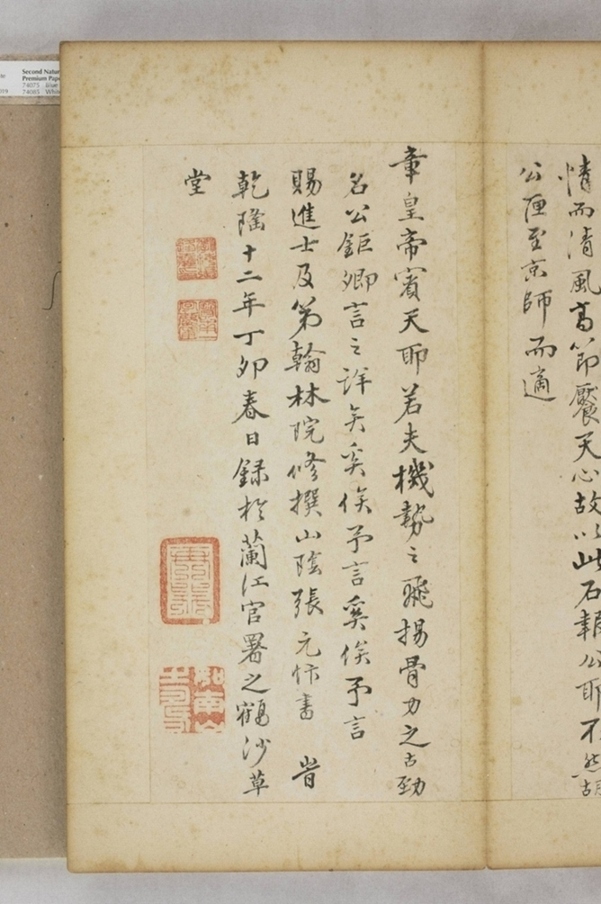 情而清風高節饜天心故以此石報公耶不然胡
公匣至京師而適
章皇帝賓天耶若夫機勢之飛揚骨力之古勁
名公鉅卿言之詳矣奚俟予言奚俟予言
賜進士及第翰林院修撰山陰張元忭書 旹
乾隆十二年丁卯春日録於蘭江官署之鶴沙草
堂
Second Natur
Premium Pap
74073
74085